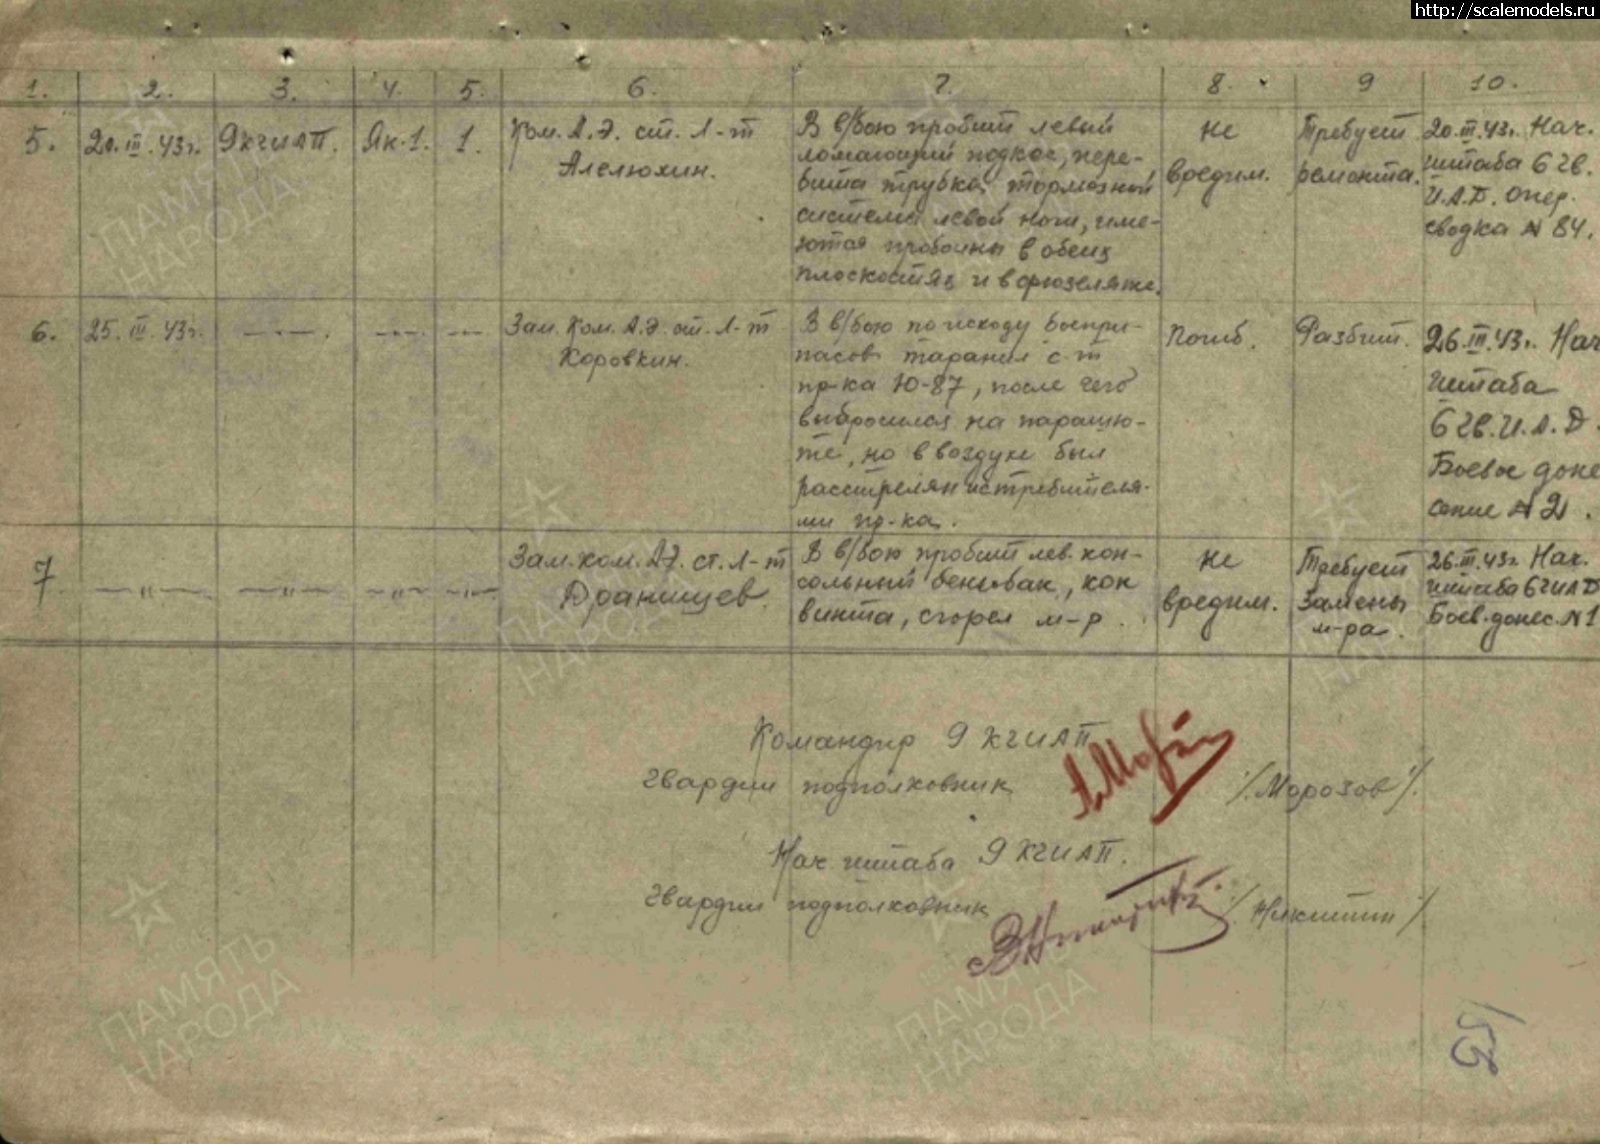 http://scalemodels.ru
1. 2. 3. 4. 5. 6. 7. 8. 9 10.
5. 20.III.43г. 9КГИАП. Як-1. 1.
Ком. А.Э. ст. Л-т
Алелюхин.
В в/бою пробит левый
ломающий подкос, пере-
бита трубка тормазной
системы левой ноги, име-
ются пробоины в обеих
плоскостях и в фюзеляже.
Не
вредим.
Требует
ремонта.
20.III.43г. Нач.
штаба 6 гв.
И.А.Д. опер.
сводка № 84.
6. 25.III.43г. —·—·— —·—·— —·—
Зам. Ком. А.Э. ст. Л-т
Коровкин.
В в/бою по исходу боепри-
пасов таранил с-т
пр-ка Ю-87, после чего
выбросился на парашю-
те, но в воздухе был
расстрелян истребителя-
ми пр-ка.
Погиб.
Разбит.
26.III.43г. Нач
штаба
6 гв. И.А.Д.
Боевое доне
сение № 2.
7 —"— —"— —"— —"—
Зам. ком. АЭ. ст. Л-т
Дранищев.
В в/бою пробит лев. кон-
сольный бензобак, кок
винта, сгорел м-р.
Не
вредим.
Требует
замены
м-ра.
26.III.43г. Нач.
штаба 6 ГИАД
Боев. донес. №1
Командир 9 КГИАП
гвардии подполковник /Морозов/.
Нач. штаба 9 КГИАП.
гвардии подполковник /Никитин/
ПАМЯТЬ
НАРОДА
ПАМЯТЬ
НАРОДА
ПАМЯТЬ
НАРОДА
ПАМЯТЬ
НАРОДА